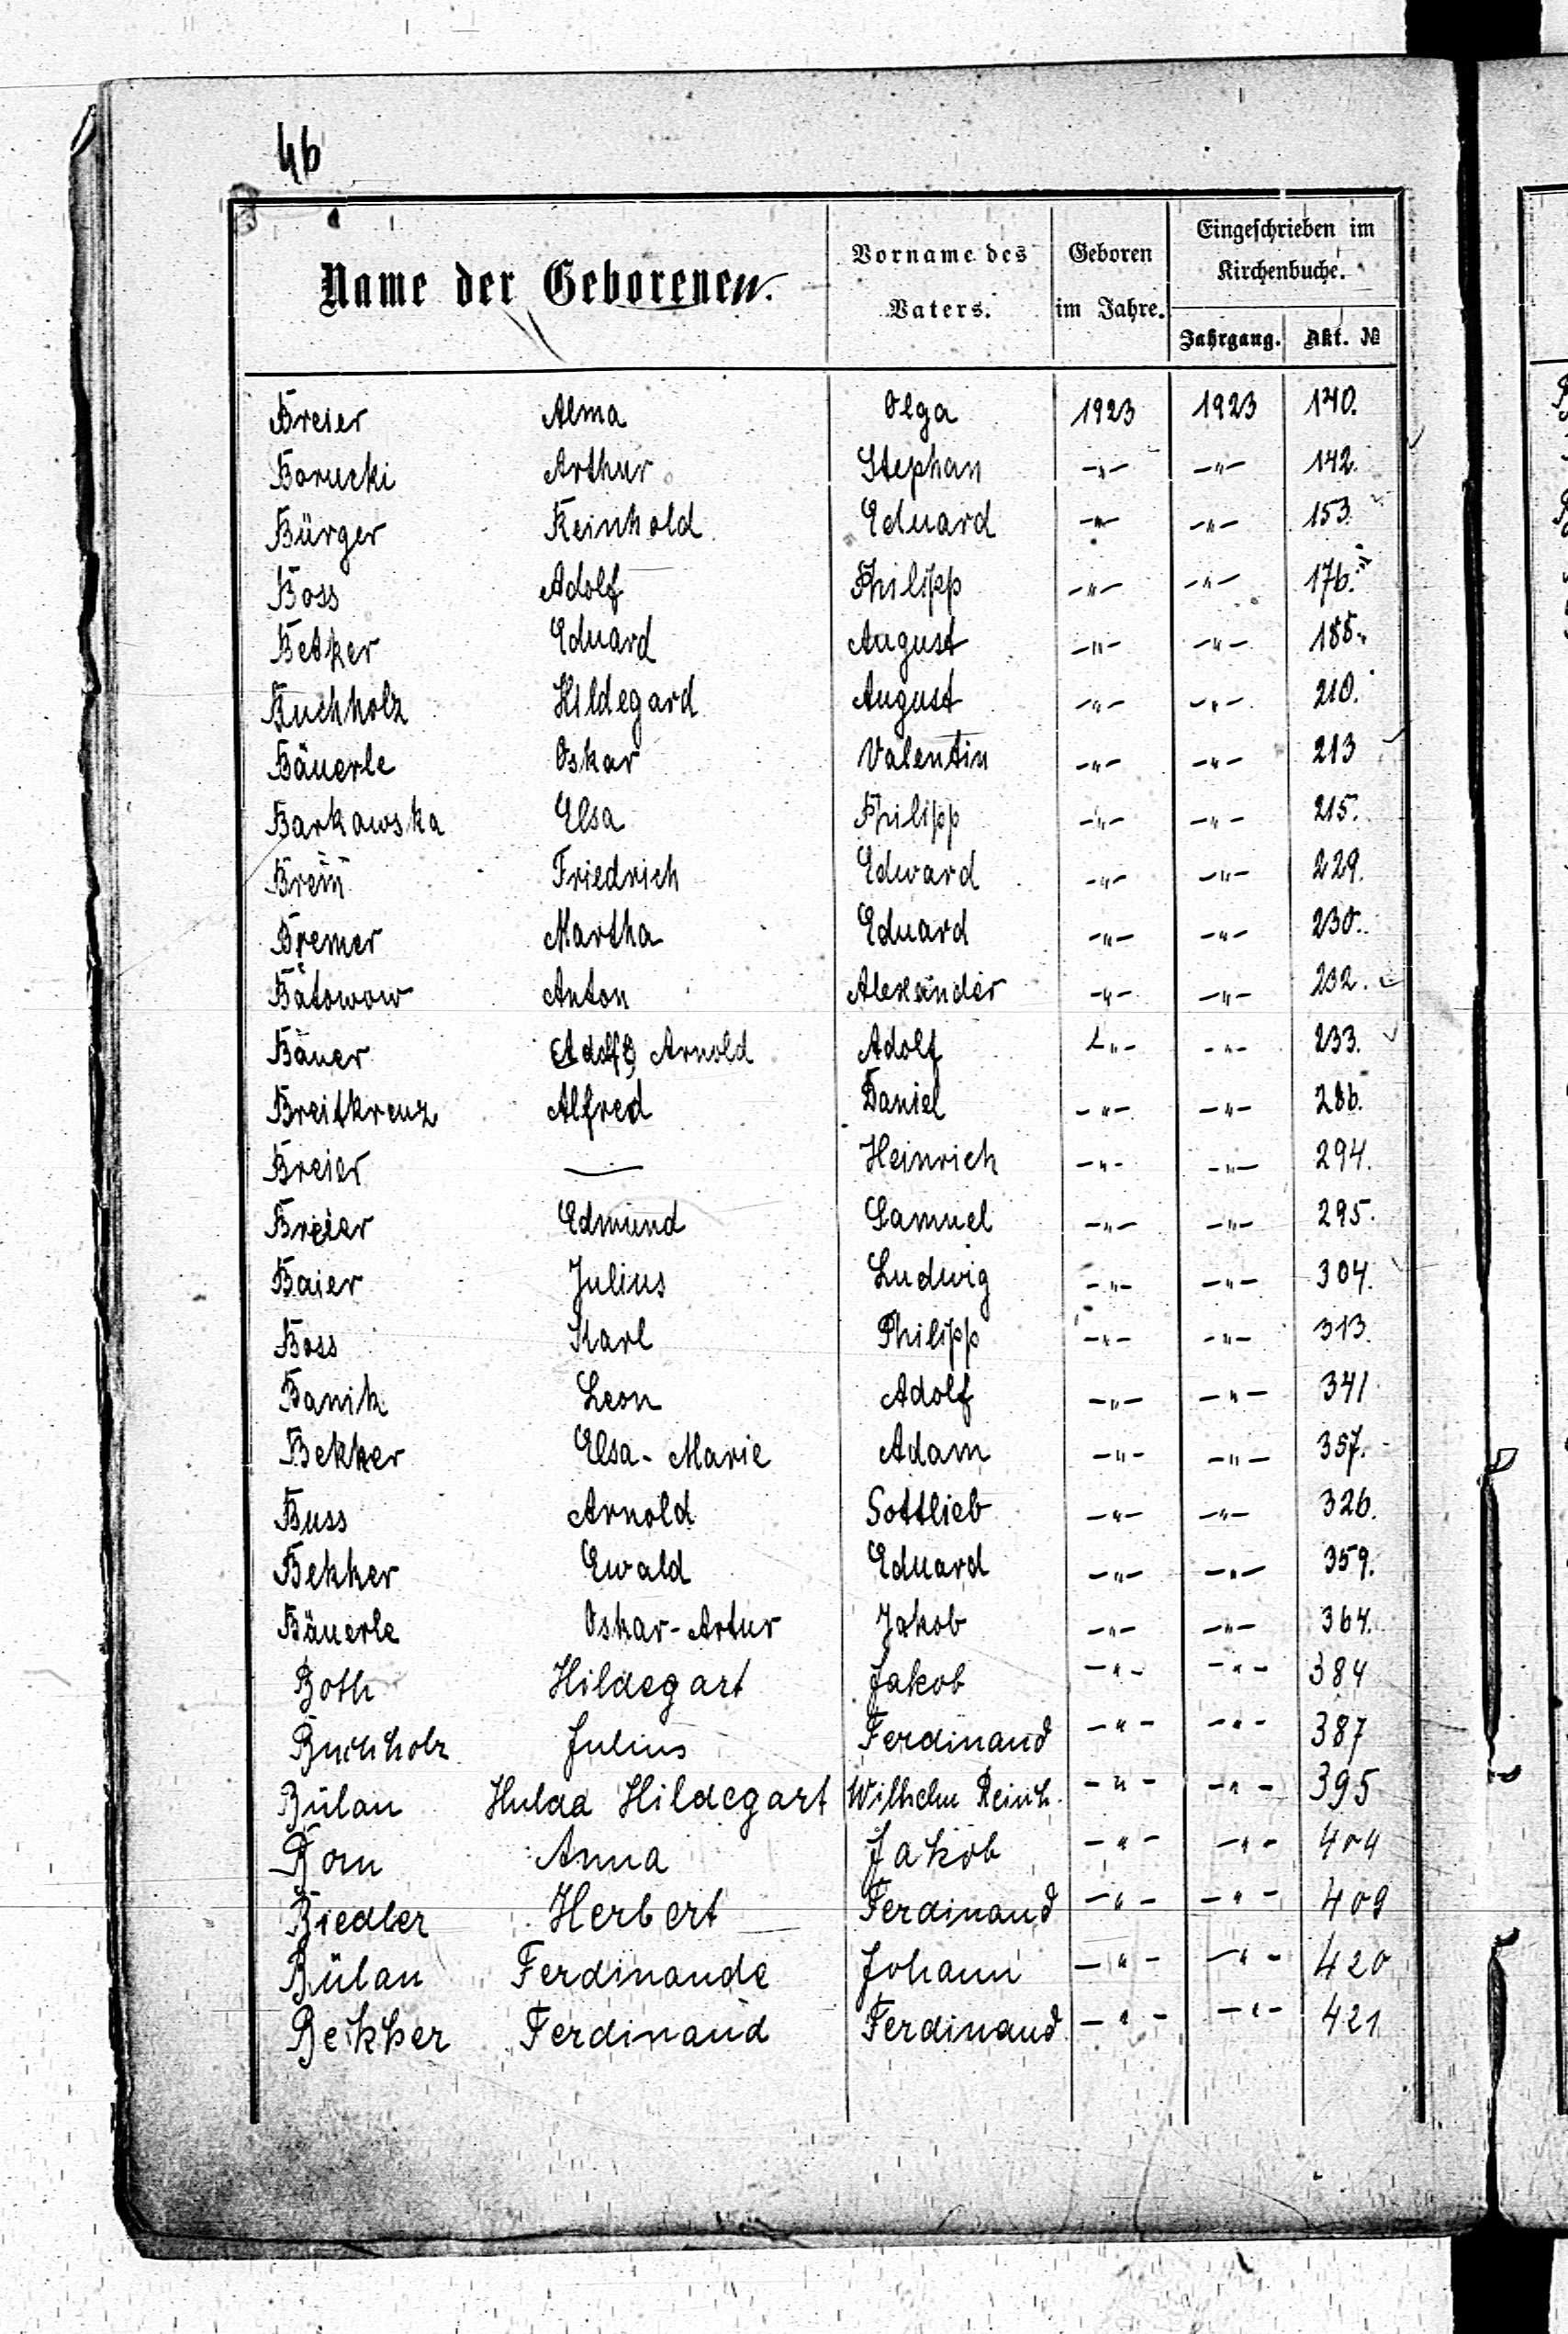 46
Name der Geborenen.
Vorname des Vaters.
Geboren im Jahre.
Eingeschrieben im Kirchenbuche.
Jahrgang. Akt. №
Breier Alma Olga 1923 1923 140.
Borucki Arthur Stephan -"- -"- 142.
Bürger Reinhold Eduard -"- -"- 153.
Boss Adolf Philipp -"- -"- 176.
Betker Eduard August -"- -"- 185.
Buchholz Hildegard August -"- -"- 210.
Bäuerle Oskar Valentin -"- -"- 213
Barkowska Elsa Philipp -"- -"- 215.
Friedrich Edward -"- -"- 229.
Bremer Martha Eduard -"- -"- 230.
Batowow Anton Alexander -"- -"- 232.
Bauer (Adolf) Arnold Adolf -"- -"- 233.
Breitkreuz Alfred Daniel -"- -"- 286.
Breier — Heinrich -"- -"- 294.
Breier Edmund Samuel -"- -"- 295.
Baier Julius Ludwig -"- -"- 304.
Boss Karl Philipp -"- -"- 313.
Banik Leon Adolf -"- -"- 341
Bekker Elsa-Marie Adam -"- -"- 357.
Buss Arnold Gottlieb -"- -"- 326.
Bekker Ewald Eduard -"- -"- 359.
Bäuerle Oskar-Artur Jakob -"- -"- 364.
Both Hildegart Jakob -"- -"- 384
Buchholz Julius Ferdinand -"- -"- 387
Bülau Hulda Hildegart Wilhelm Reinh. -"- -"- 395
Born Anna Jakob -"- -"- 404
Biedler Herbert Ferdinand -"- -"- 409
Bülau Ferdinande Johann -"- -"- 420
Bekker Ferdinand Ferdinand -"- -"- 421